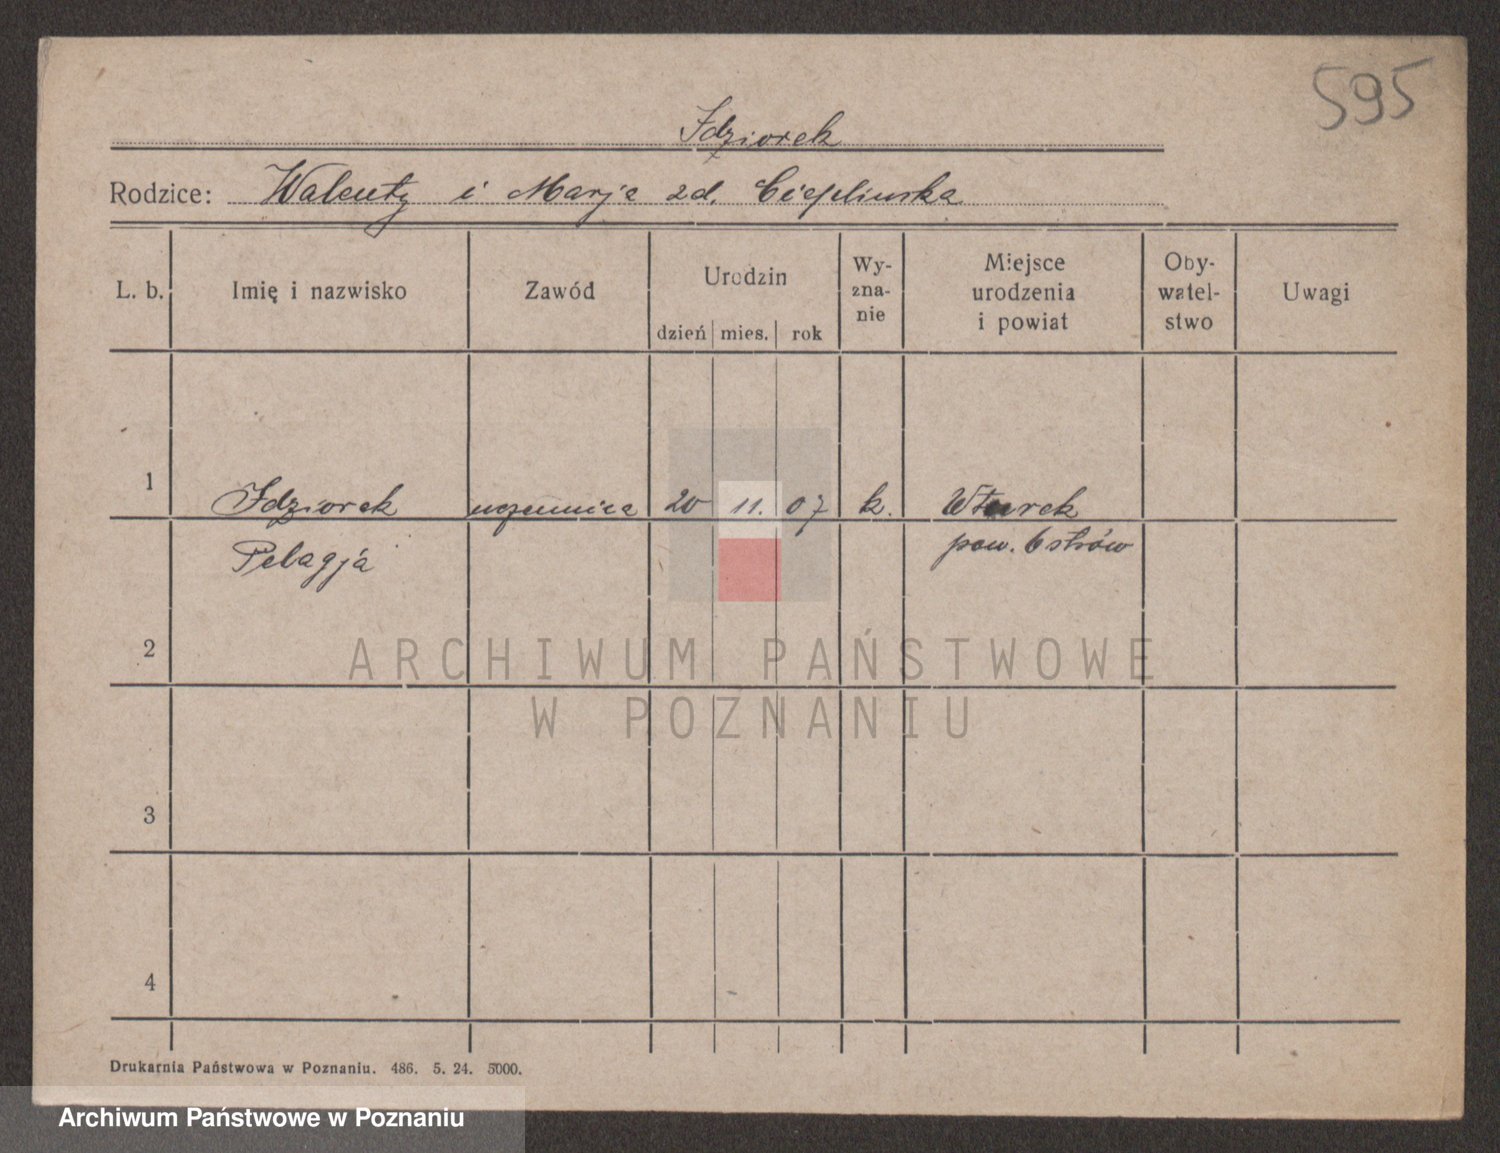 595
Idziorek
Rodzice: Walenty i Marja zd. Cieplinska
L. b. Imię i nazwisko Zawód Urodzin Wy-zna-nie Miejsce urodzenia i powiat Oby-watel-stwo Uwagi
dzień mies. rok
1 Idziorek uczennica 20 11. 07 k. Wturek
Pelagja pow. Ostrów
2
ARCHIWUM PAŃSTWOWE
W POZNANIU
3
4
Drukarnia Państwowa w Poznaniu. 486. 5. 24. 5000.
Archiwum Państwowe w Poznaniu